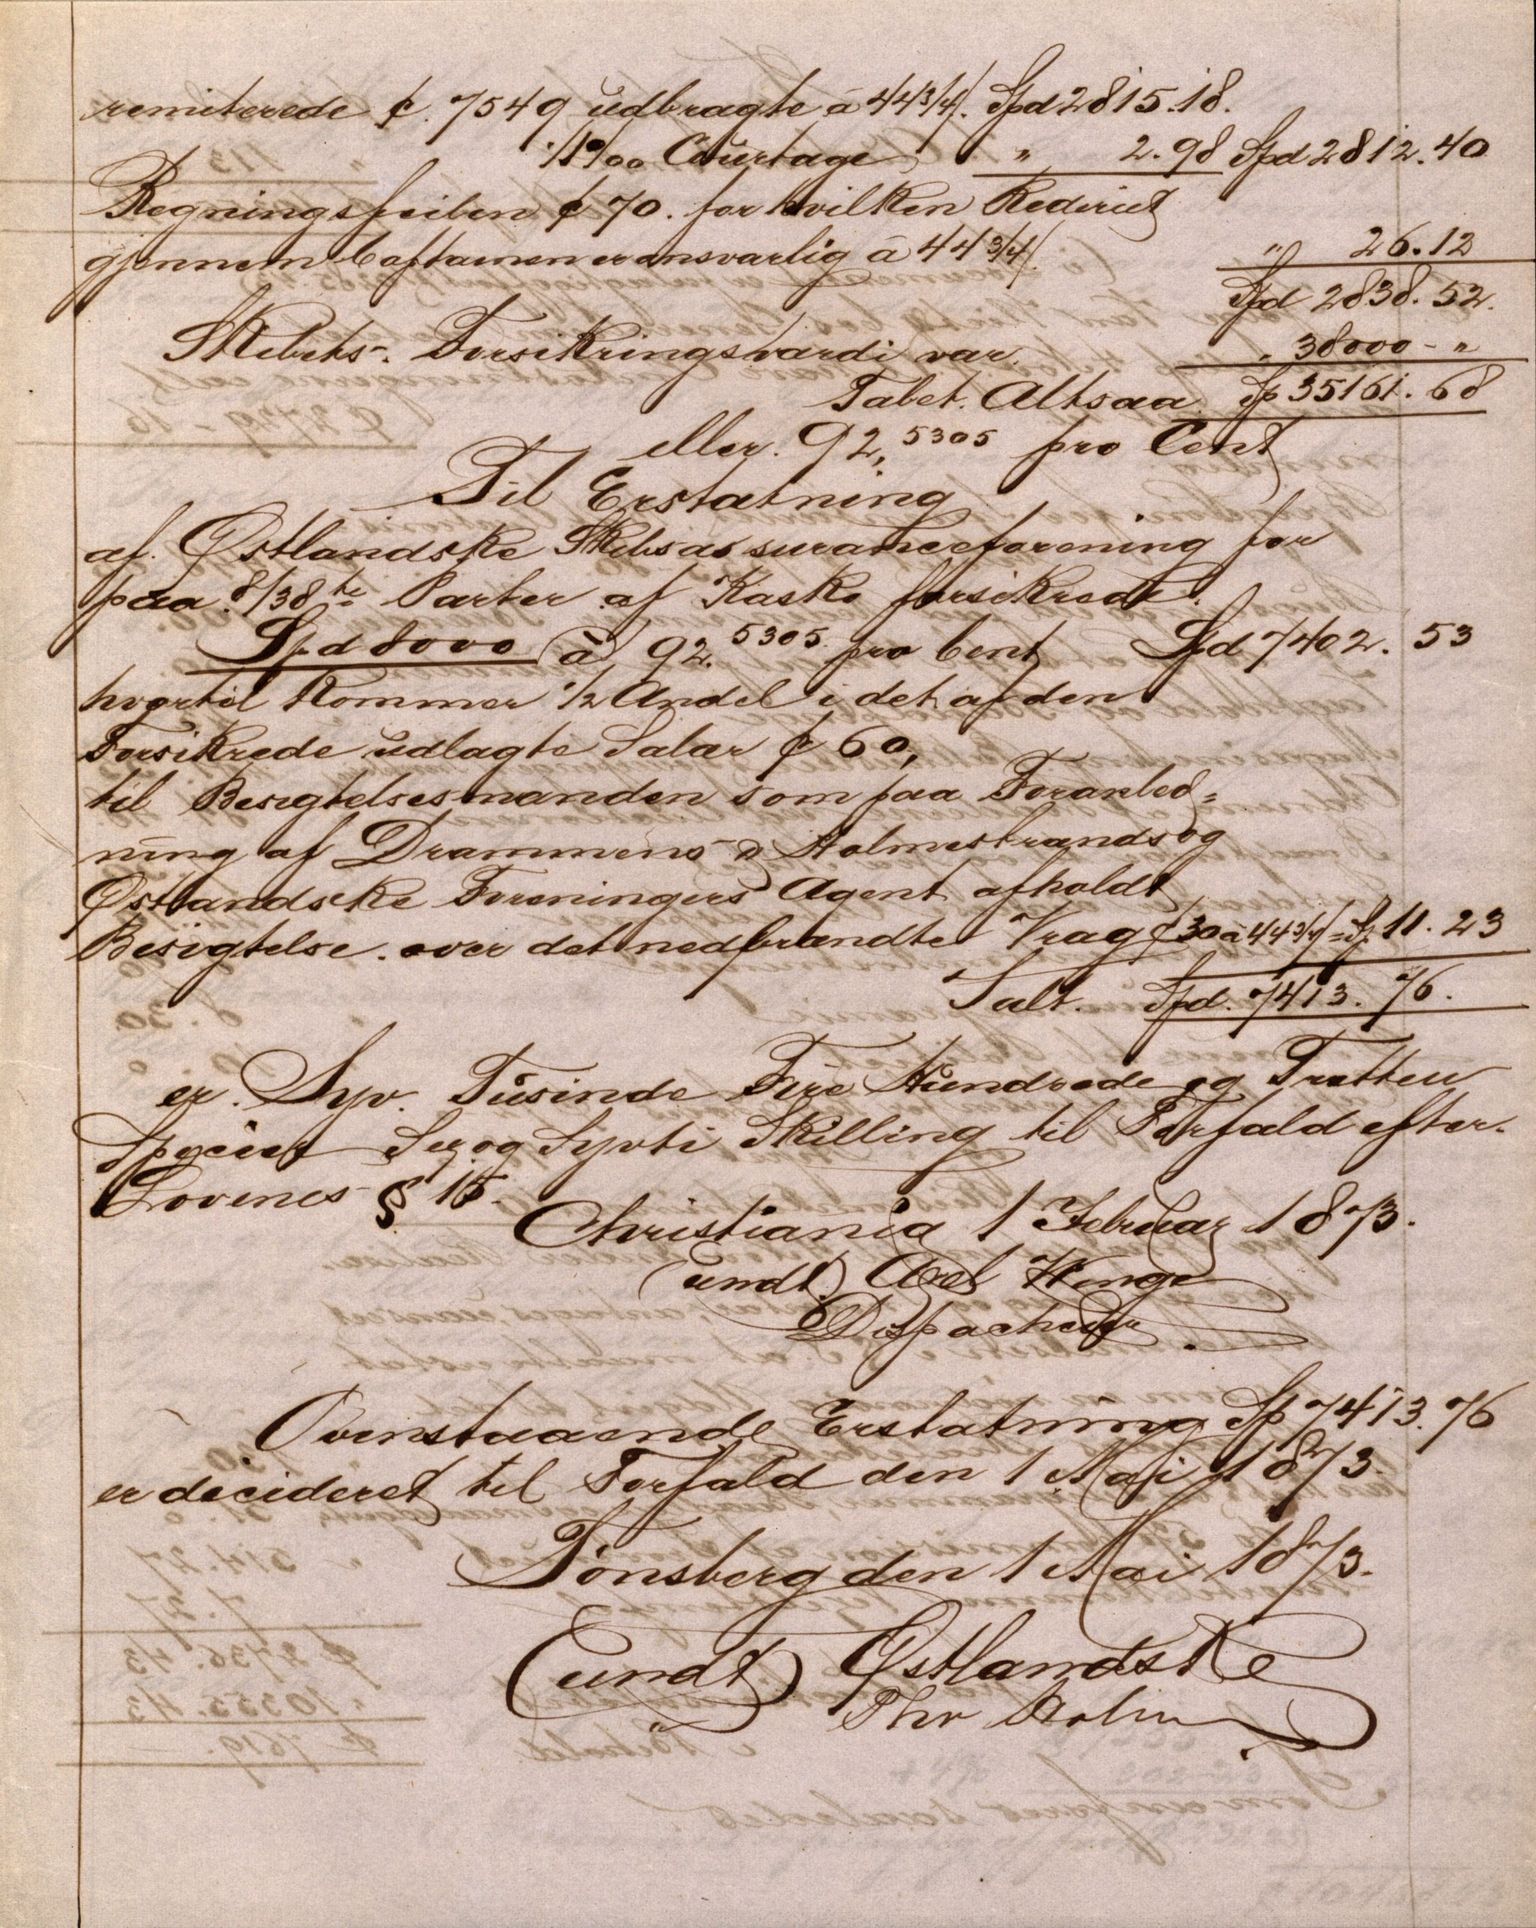 remiterede ₵. 7549 udbragte á 44 3/4/. Spd 2815.18.
1‰ Courtage „ 2.98 Spd 2812.40
Regningsfeilen ₵ 70. for hvilken Rederiet
gjennem Captainen er ansvarlig á 44 3/4/. „ 26.12
Spd 2838.52.
Skibets Forsikringsværdi var „ 38000 - „
Tabet. Altsaa Sp 35161.68
eller. 92,5305 pro Cent
Til Erstatning
af. Østlandske Skibsassuranceforening for
paa 8/38te Parter af Kasko forsikrede.
Spd 8000 á 92.5305 pro Cent Spd 7402.53
hvortil kommer 1/2 Andel i det af den
Forsikrede udlagte Salær ₵ 60,
til Besigtelsesmænden som paa Foranled=
ning af Drammens & Holmestrands og
Østlandske Foreningers Agent afholdt
Besigtelse. over det nedbrændte Vrag ₵ 30 á 44 3/4/ = Sp. 11.23
Talt. Spd. 7413.76.
er. Syv. Tusinde Fire Hundrede og Tretten
Species Sex og Sytti Skilling til Forfald efter.
Lovenes § 15.
Christiania 1 Februar 1873.
(undt.) Axel Winge
Dispacheur
Ovenstaaende Erstatning Sp 7413.76
er decideret til Forfald den 1 Mai 1873.
Tönsberg den 1 Mai 1873.
(undt) Østlandske
Thv Holm